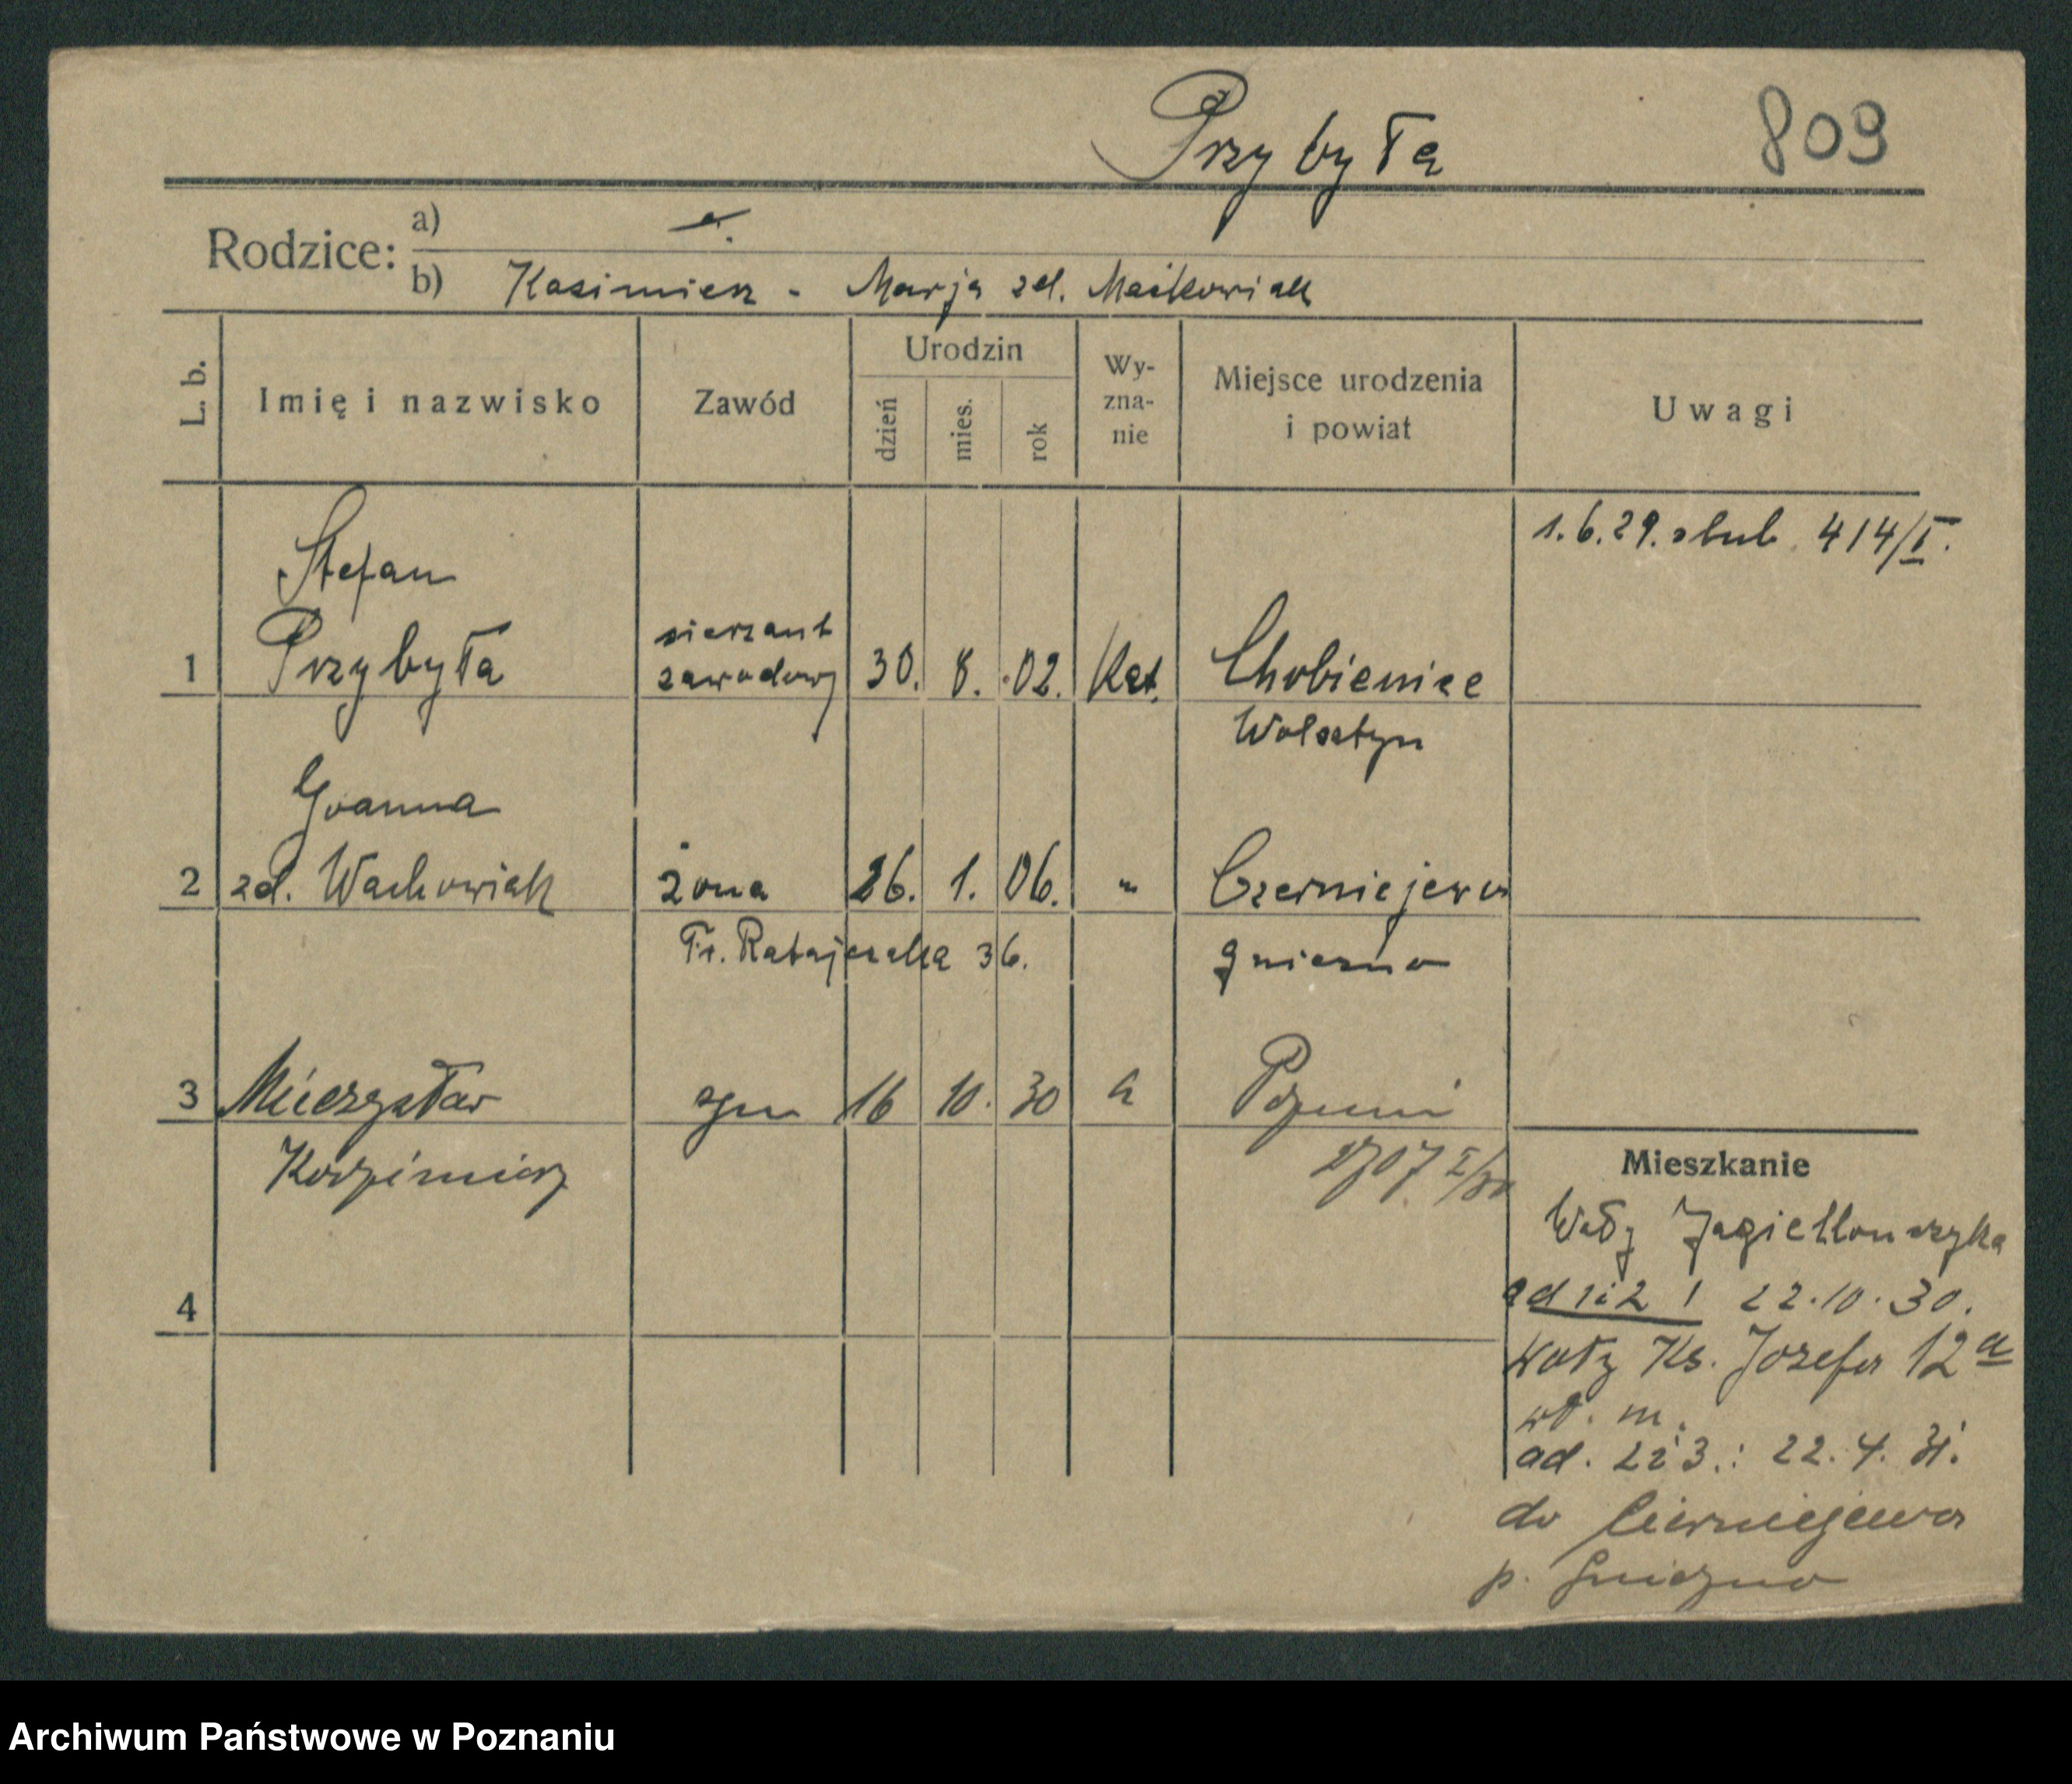 Przybyła 809
Rodzice: a)
b) Kasimierz - Marja zd. Maćkowiak
L. b. Imię i nazwisko Zawód Urodzin dzień mies. rok Wy-zna-nie Miejsce urodzenia i powiat Uwagi
1.6.29. slub 414/I.
Stefan
1 Przybyła sierzant zawodowy 30. 8. 02. Kat. Chobienice
Wolsztyn
Joanna
2 zd. Wachowiak żona 26. 1. 06. " Czerniejewo
Fr. Ratajczaka 36. Gniezno
3 Mieczysław syn 16 10. 30 Poznań
Kazimierz 2707 I/30
Mieszkanie
Wały Jagiellonczyka
4 ad 1i2 1 22.10.30.
Wały Ks. Jozefa 12a
wł. m.
ad. 2i3.: 22.4.31.
do Czerniejewa
p. Gniezno
Archiwum Państwowe w Poznaniu